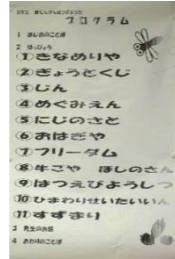 プログラム
1 はじめのことば
2 はっぴょう
①きなめりや
②ぎょうとくじ
③じん
④めぐみえん
⑤にじのさと
⑥おはぎや
⑦フリーダム
⑧牛ごや ほしのさん
⑨はつえびようしつ
⑩ひまわりせいたいいん
⑪すずまり
3 先生のお話
4 おわりのことば